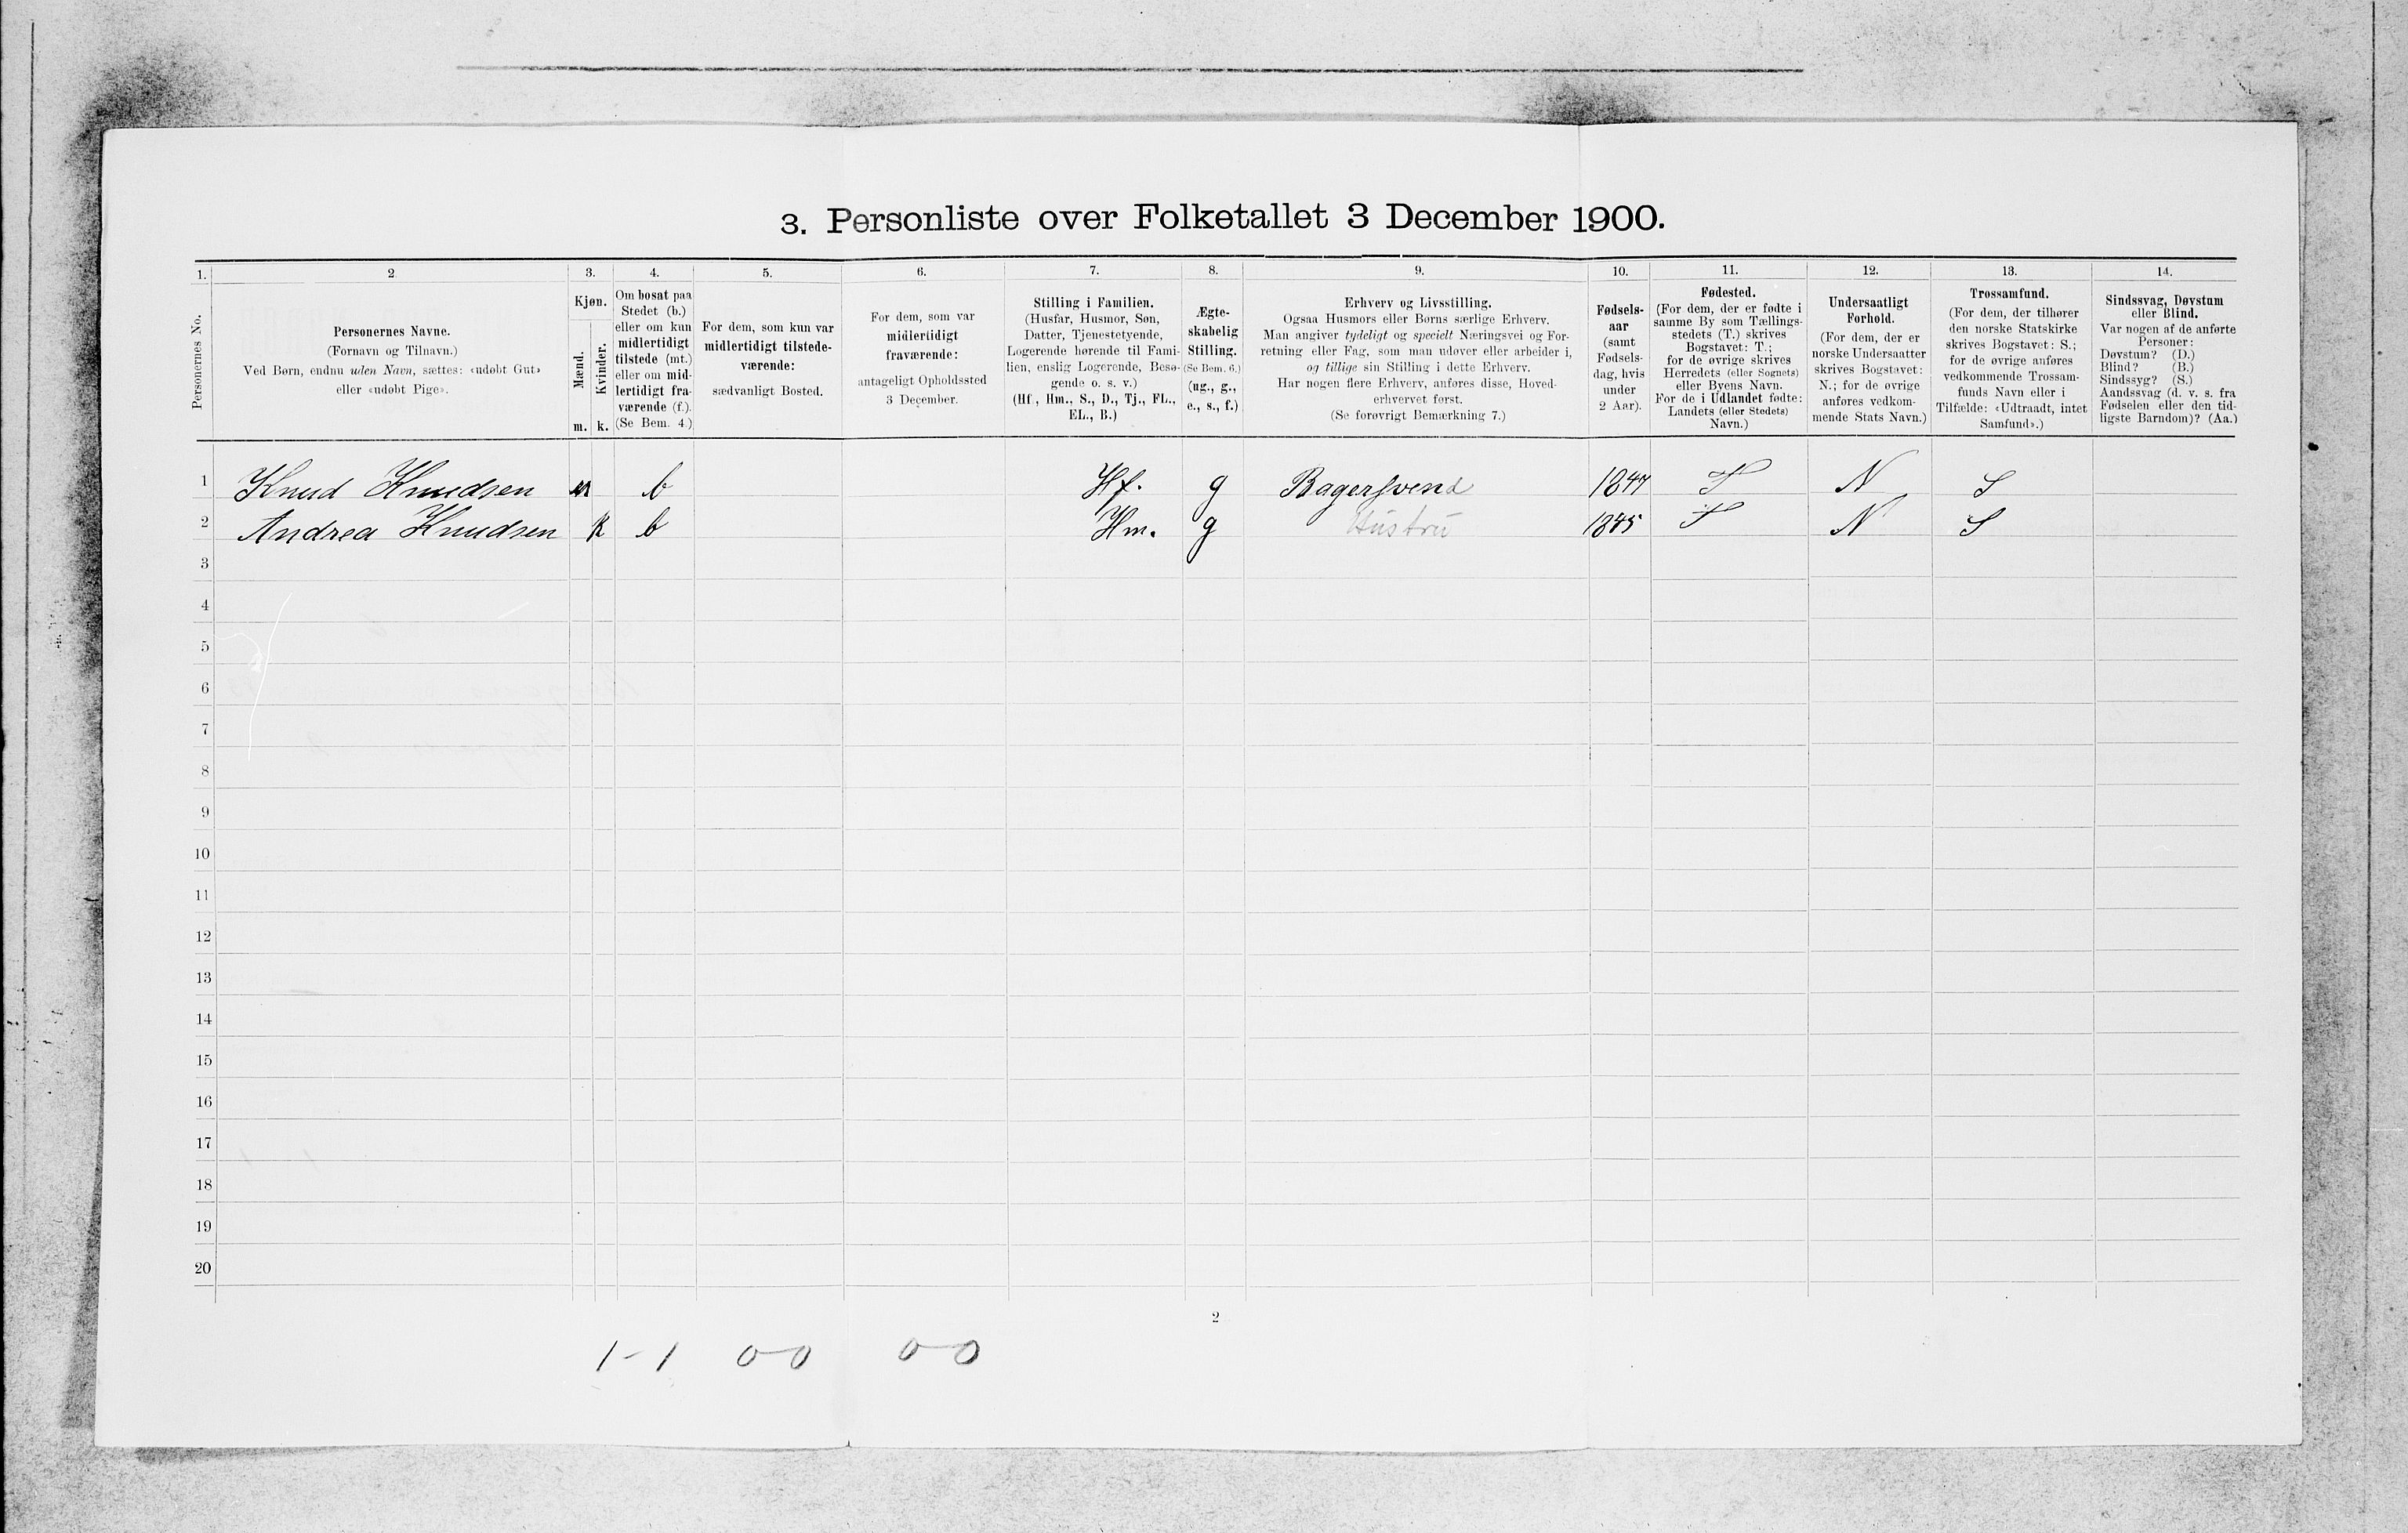 3. Personliste over Folketallet 3 December 1900.
1. 2 3. 4. 5. 6. 7. 8. 9. 10. 11. 12. 13. 14.
Personernes No.
Personernes Navne.
(Fornavn og Tilnavn.)
Ved Børn, endnu uden Navn, sættes: «udøbt Gut»
eller «udøbt Pige».
Kjøn.
Mænd.
Kvinder.
m. k.
Om bosat paa
Stedet (b.)
eller om kun
midlertidigt
tilstede (mt.)
eller om mid-
lertidigt fra-
værende (f.).
(Se Bem. 4.)
For dem, som kun var
midlertidigt tilstede-
værende:
sædvanligt Bosted.
For dem, som var
midlertidigt
fraværende:
antageligt Opholdssted
3 December.
Stilling i Familien.
(Husfar, Husmor, Søn,
Datter, Tjenestetyende,
Logerende hørende til Fami-
lien, enslig Logerende, Besø-
gende o. s. v.)
(Hf., Hm., S., D., Tj., FL.,
EL., B.)
Ægte-
skabelig
Stilling.
(Se Bem. 6.)
(ug., g.,
e., s., f.)
Erhverv og Livsstilling.
Ogsaa Husmors eller Børns særlige Erhverv.
Man angiver tydeligt og specielt Næringsvei og For-
retning eller Fag, som man udøver eller arbeider i,
og tillige sin Stilling i dette Erhverv.
Har nogen flere Erhverv, anføres disse, Hoved-
erhvervet først.
(Se forøvrigt Bemærkning 7.)
Fødsels-
aar
(samt
Fødsels-
dag, hvis
under
2 Aar).
Fødested.
(For dem, der er fødte i
samme By som Tællings-
stedets (T.) skrives
Bogstavet: T.;
for de øvrige skrives
Herredets (eller Sognets)
eller Byens Navn.
For de i Udlandet fødte:
Landets (eller Stedets)
Navn.)
Undersaatligt
Forhold.
(For dem, der er
norske Undersaatter
skrives Bogstavet:
N.; for de øvrige
anføres vedkom-
mende Stats Navn.)
Trossamfund.
(For dem, der tilhører
den norske Statskirke
skrives Bogstavet: S.;
for de øvrige anføres
vedkommende Trossam-
funds Navn eller i
Tilfælde: «Udtraadt, intet
Samfund».)
Sindssvag, Døvstum
eller Blind.
Var nogen af de anførte
Personer:
Døvstum? (D.)
Blind? (B.)
Sindssyg? (S.)
Aandssvag (d. v. s. fra
Fødselen eller den tid-
ligste Barndom)? (Aa.)
1 Knud Knudsen m b Hf. g Bagersvend 1847 T N S
2 Andrea Knudsen k b Hm. g Hustru 1845 T N S
3
4
5
6
7
8
9
10
11
12
13
14
15
16
17
18
19
20
2
1-1 0-0 0-0